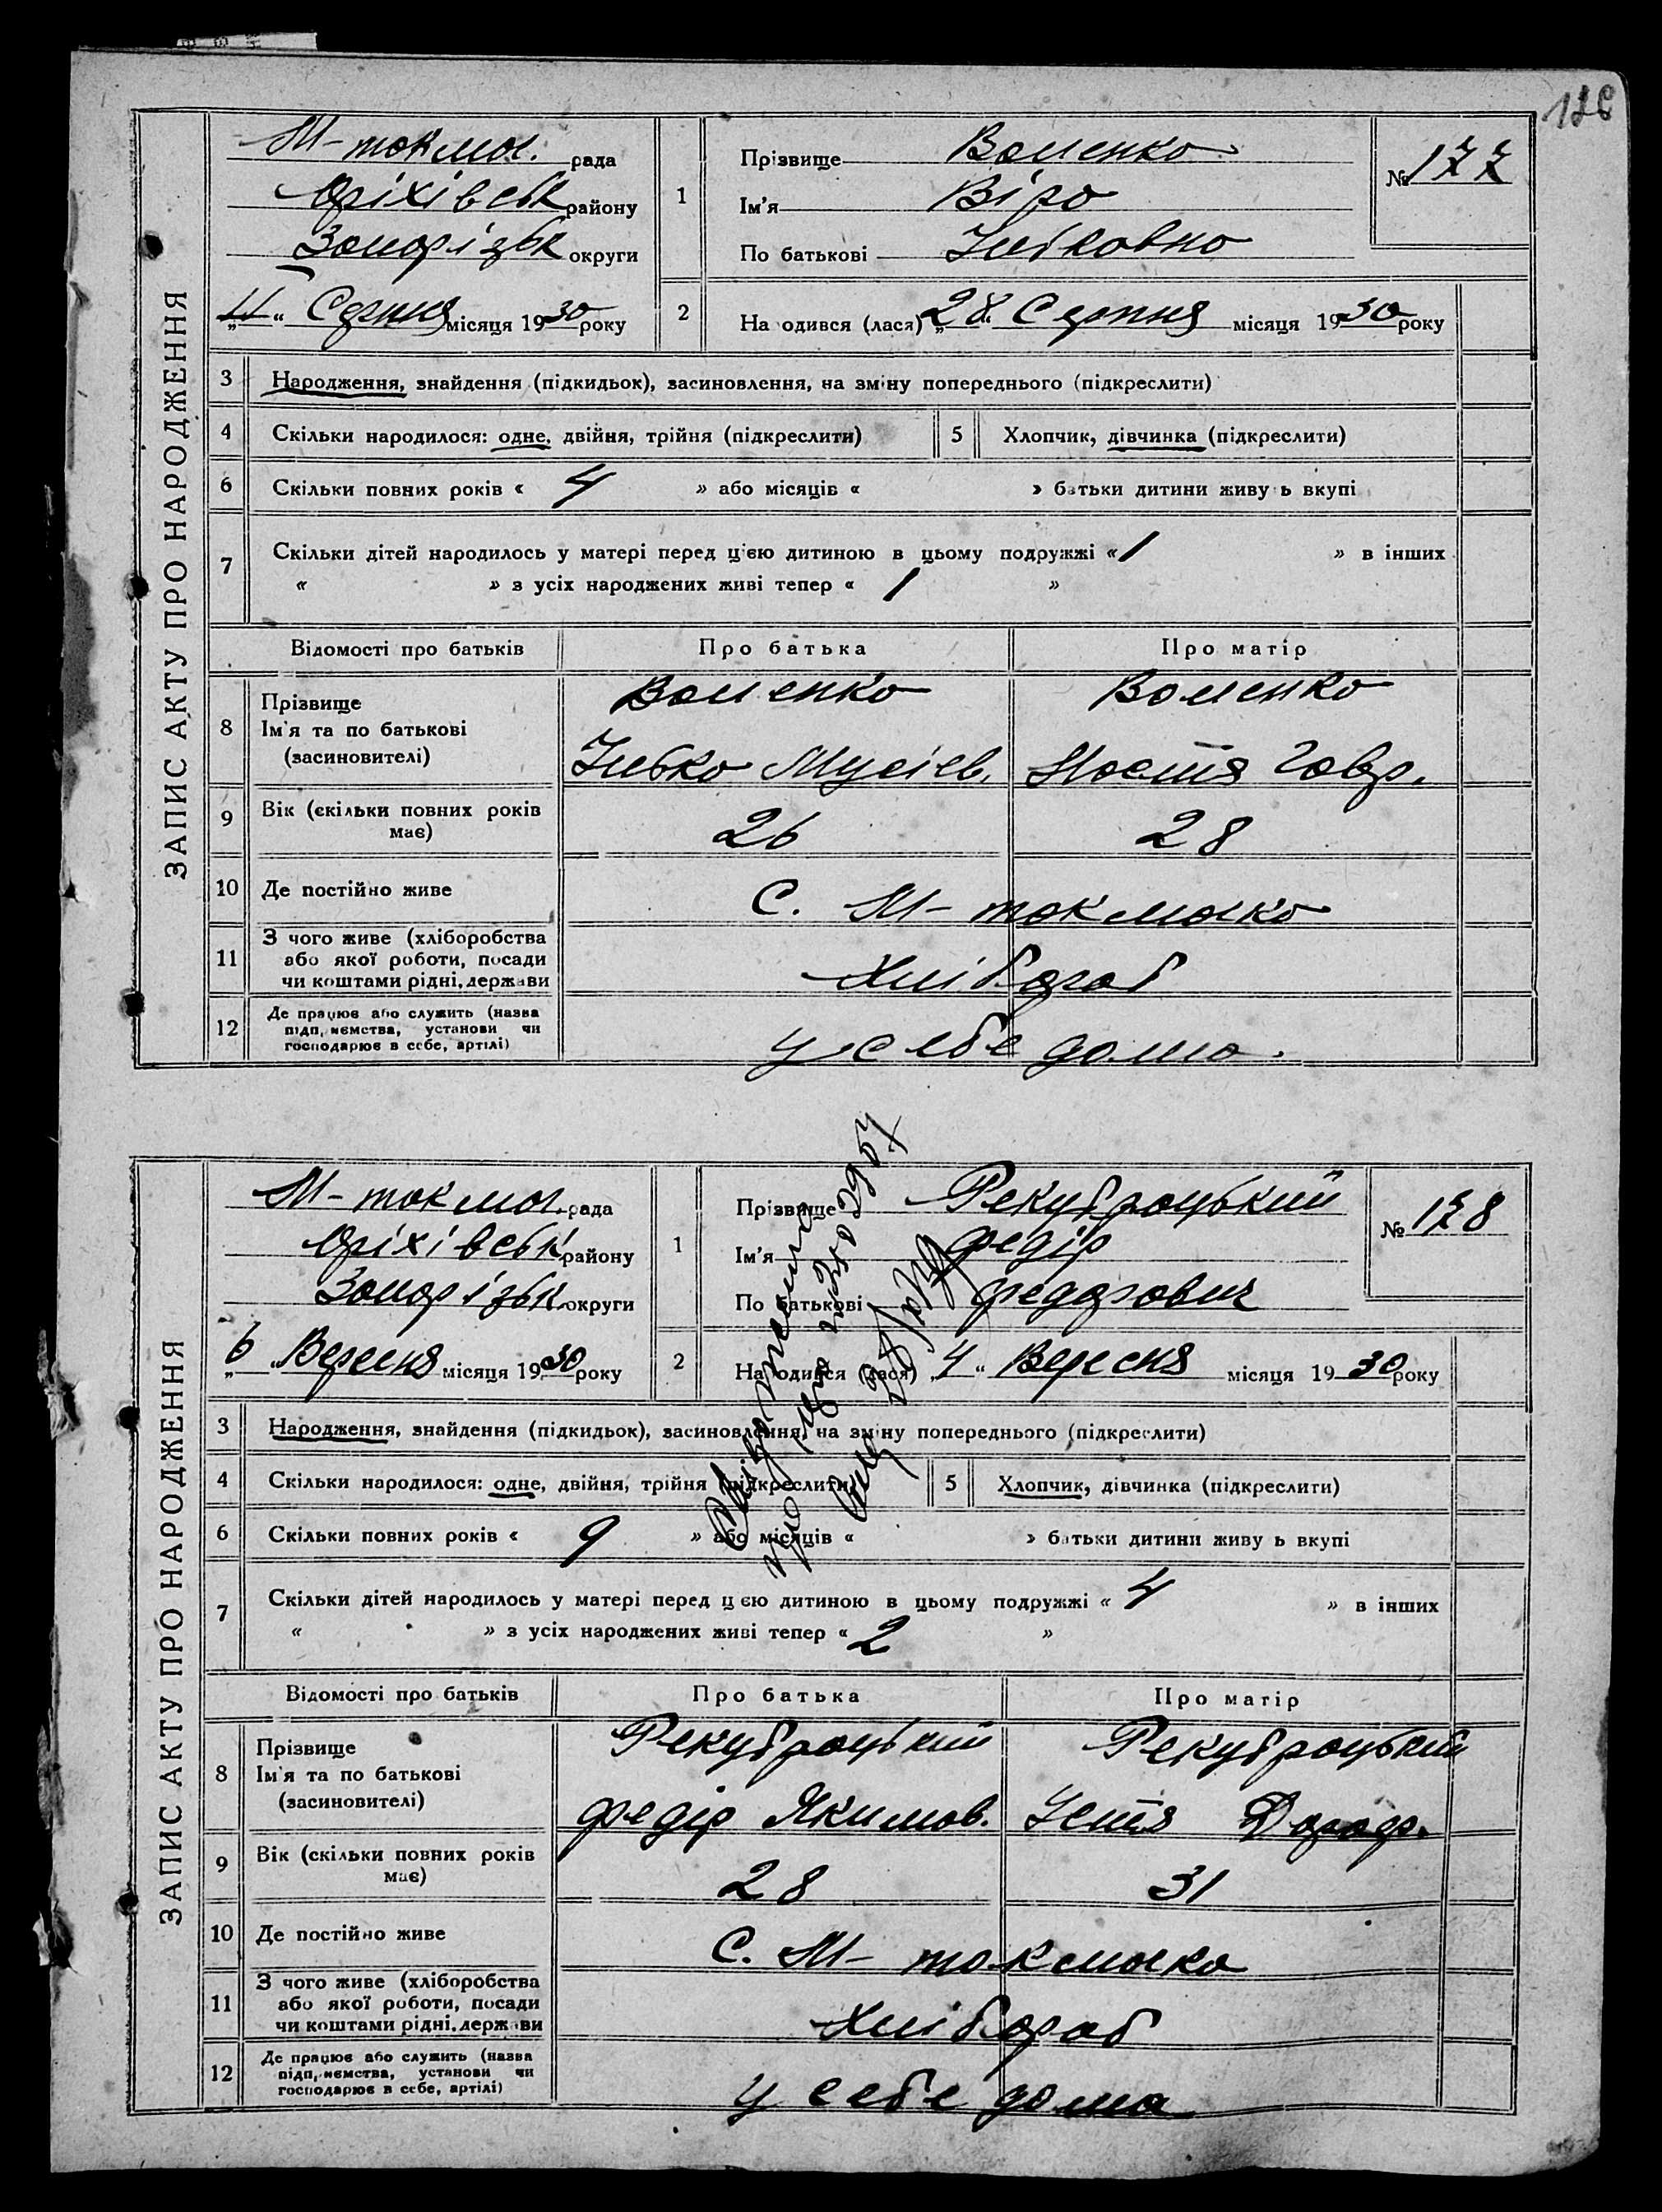 ЗАПИС АКТУ ПРО НАРОДЖЕННЯ
М-токмач. рада
Оріхівськ району
Запорізьк округи
місяця 1930 року
1
Прізвище
Ім'я Віра
По батькові
№ 177
2
На одився (лася) „28“ Серпня місяця 1930 року
3 Народження, знайдення (підкидьок), засиновлення, на зміну попереднього (підкреслити)
4 Скільки народилося: одне, двійня, трійня (підкреслити) 5 Хлопчик, дівчинка (підкреслити)
6 Скільки повних років « 4 » або місяців « » батьки дитини живу ь вкупі
7 Скільки дітей народилось у матері перед цією дитиною в цьому подружжі « 1 » в інших
« » з усіх народжених живі тепер « 1 »
Відомості про батьків Про батька Про матір
8 Прізвище
Ім'я та по батькові
(засиновителі)
Мусіев. Настя Гавр.
9 Вік (скільки повних років має) 26 28
10 Де постійно живе С. М-токмачка
11 З чого живе (хліборобства або якої роботи, посади чи коштами рідні, держави Хлібороб
12 Де працює або служить (назва підп, иємства, установи чи господарює в себе, артілі) у себе дома.
ЗАПИС АКТУ ПРО НАРОДЖЕННЯ
М-токмач. рада
Оріхівськ району
Запорізьк. округи
„6“ Вересня місяця 1930 року
1
Прізвище Рекубрацький
Ім'я Федір
По батькові Федорович
№ 178
2
На одився (лася) „4“ Вересня місяця 1930 року
3 Народження, знайдення (підкидьок), засиновлення, на зміну попереднього (підкреслити)
4 Скільки народилося: одне, двійня, трійня (підкреслити) 5 Хлопчик, дівчинка (підкреслити)
6 Скільки повних років « 9 » або місяців « » батьки дитини живу ь вкупі
7 Скільки дітей народилось у матері перед цією дитиною в цьому подружжі « 4 » в інших
« » з усіх народжених живі тепер « 2 »
Відомості про батьків Про батька Про матір
8 Прізвище
Ім'я та по батькові
(засиновителі)
Рекубрацький Рекубрацький
Федір Якимов. Устя Дороф.
9 Вік (скільки повних років має) 28 31
10 Де постійно живе С. М-токмачка
11 З чого живе (хліборобства або якої роботи, посади чи коштами рідні, держави Хлібороб
12 Де працює або служить (назва підп, иємства, установи чи господарює в себе, артілі) у себе дома